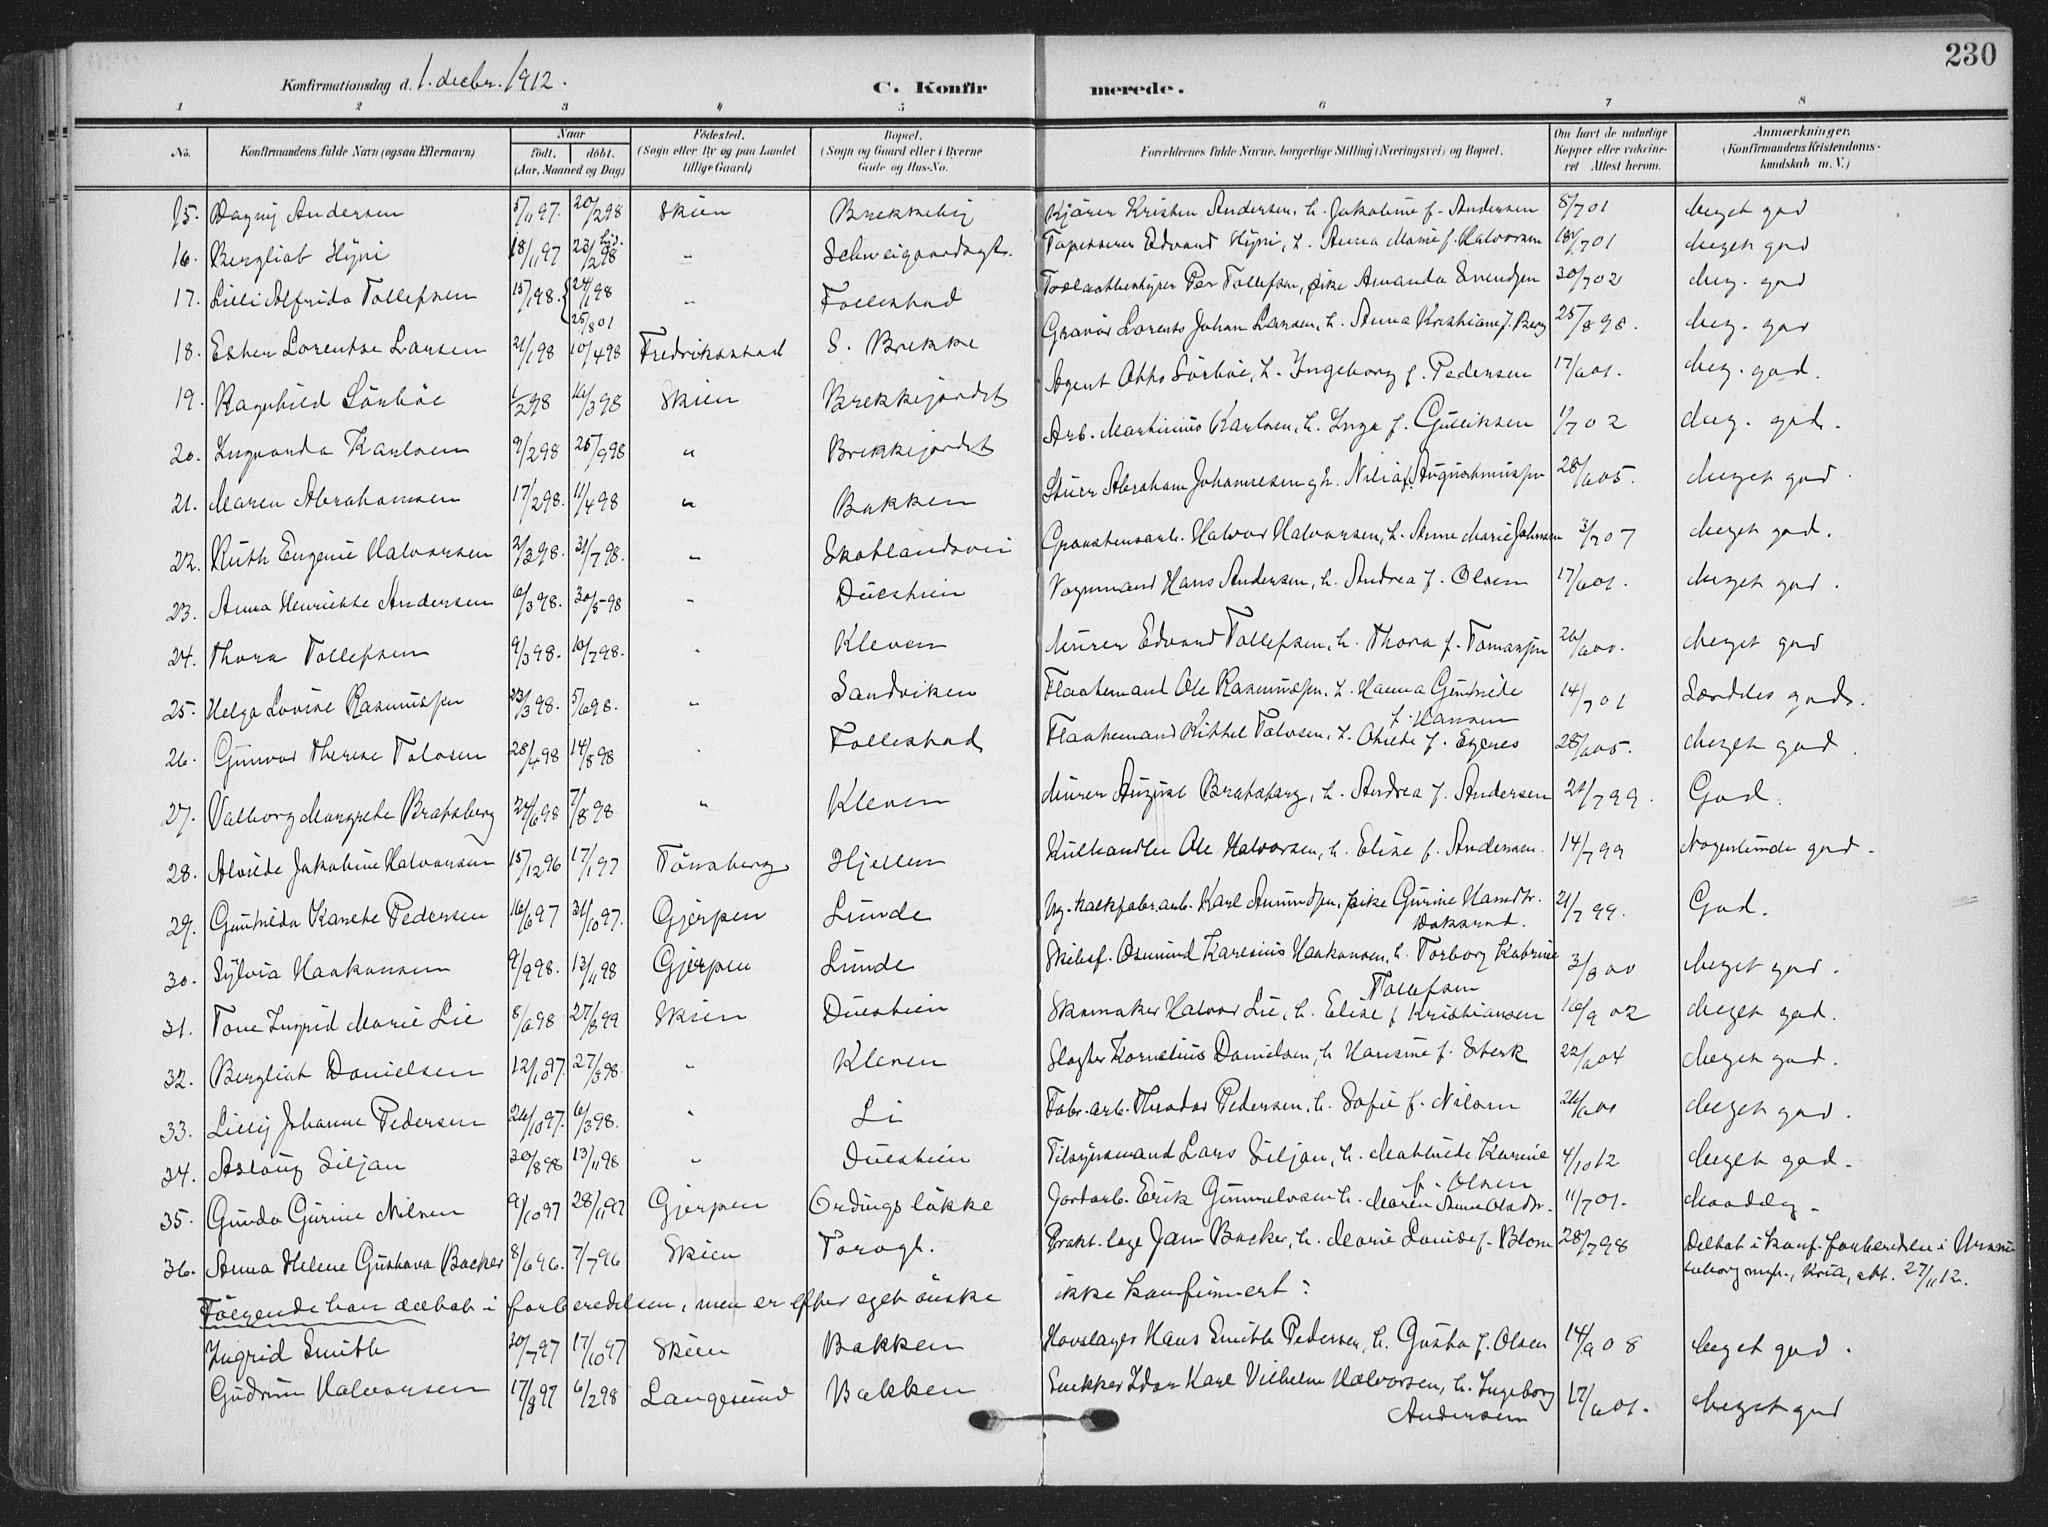 230
Konfirmationsdag d. 1. decbr. 1912.
C. Konfirmerede.
1 2 3 4 5 6 7 8
No. Konfirmandens fulde Navn (ogsaa Efternavn) Naar født, døbt. (Aar, Maaned og Dag) Fødested. (Sogn eller By og paa Landet tillige Gaard) Bopæl. (Sogn og Gaard eller i Byerne Gade og Hus-No. Forældrenes fulde Navne, borgerlige Stilling (Næringsvei) og Bopæl. Om havt de naturlige Kopper eller vakcineret Attest herom. Anmærkninger. (Konfirmandens Kristendomskundskab m. V.)
15. Dagny Andersen 5/11 97. 20/2 98 Skien Brekkeby Kjører Kristen Andersen, h. Jakobine f. Andersen 8/7 01 Meget god
16. Bergliot Hyni 18/11 97 23/2 98 " Schweigaardsgt. Tapetserer Edvard Hyni, h. Anna Marie f. Halvorsen 18/7 01 Meget god
17. Lilli Alfrida Tollefsen 15/1 98. 24/1 98 25/8 01 " Follestad Per Tollefsen, pike Amanda Svendsen 30/7 02 Meg. god
18. Esther Lorentse Larsen 21/1 98 10/4 98 Fredriksstad S. Brekke Gravør Lorents Johan Larsen, h. Anna Kristiane f. Berg 25/8 98. Meg. god
19. Ragnhild Sörböe 1/2 98 16/3 98 Skien Brekkejordet Agent Otto Sörböe, h. Ingeborg f. Pedersen 17/6 01. Meg. god.
20. Ingvarda Karlsen 9/2 98 25/9 98 " Brekkejordet Arb. Martinius Karlsen, h. Inga f. Gulliksen 1/7 02 Meg. god.
21. Maren Abrahamsen 17/2 98. 11/4 98 " Bakken Stuer Abraham Johannesen, h. Nilia f. 28/6 05. Meget god.
22. Ruth Eugenie Halvorsen 2/3 98. 31/7 98. " Skotlandsvei Halvor Halvorsen, h. Anne Marie Johnsen 3/7 07 Meget god.
23. Anna Henriette Andersen 6/3 98. 30/5 98 " Duestien Vognmand Hans Andersen, h. Andrea f. Olsen 17/6 01. Meget god.
24. Thora Tollefsen 9/3 98. 10/7 98. " Kleven Murer Edvard Tollefsen, h. Thora f. Tomassen 26/6 00. Meget god
25. Helga Lovise Rasmussen 23/3 98. 5/6 98. " Sandviken Flaatemand Ole Rasmussen, h. Hanna Gunhilde f. Hansen 14/7 01 Særdeles god.
26. Gunvor Therese Talvsen 28/4 98 14/8 98 " Follestad Flaatemand Kittel Talvsen, h. Otilde f. Egenes 28/6 05. Meget god.
27. Valborg Margrete Bratsberg 24/6 98 7/8 98. " Kleven Murer August Bratsberg, h. Andrea f. Andersen 21/7 99. God.
28. Alvilde Jakobine Halvorsen 15/12 96 17/1 97 Tönsberg Hjellen Kulhandler Ole Halvorsen, h. Elise f. Andersen. 14/7 99 Nogenlunde god.
29. Gunhilda Karete Pedersen 16/6 97 31/10 97. Gjerpen Lunde Karl Amundsen, pike Gurine Hansdtr. 21/7 99. God.
30. Sylvia Haakonsen 9/9 98. 13/11 98 Gjerpen Lunde Skibsf. Osmund Karesius Haakonsen, h. Torborg Katrine Tollefsen 3/8 00 Meget god.
31. Tone Ingrid Marie Lie 8/6 98 27/8 99 Skien Duestien Skomaker Halvor Lie, h. Elise f. Kristiansen 16/9 02 Meget god.
32. Bergliot Danielsen 12/10 97. 27/3 98. " Kleven Slagter Kornelius Danielsen, h. Hansine f. Sterk 22/6 04 Meget god.
33. Lilly Johanne Pedersen 26/10 97. 6/3 98. " Li Fabr.arb. Theodor Pedersen, h. Sofie f. Nilsen 26/6 01 Meget god.
34. Aslaug Siljan 30/8 98 13/11 98 " Duestien Tilsynsmand Lars Siljan, h. Mathilde Karine f. Olsen 4/10 12 Meget god.
35. Gunda Gurine Nilsen 9/10 97 28/11 97 Gjerpen Ordings løkke Jordarb. Erik Gunnulvsen h. Maren Anne Olsdtr. 11/7 01. Maadelig.
36. Anna Helene Gustava Backer 8/6 96. 7/7 96 Skien Torvgt. Prakt. læge Jan Backer, h. Marie Louise f. Blom 28/7 98 Deltat i konf. forberedelse i Uranienborg mgh., Kr.ia, att. 27/11 12.
Følgende har deltat i forberedelsen, men er efter eget ønske ikke konfirmert:
Ingrid Smith 30/7 97 17/10 97 Skien Bakken Hovslager Hans Smith Pedersen, h. Gusta f. Olsen 14/9 08 Meget god.
Gudrun Halvorsen 17/8 97 6/2 98 Langesund Bakken Snekker Idar Karl Vilhelm Halvorsen, h. Ingeborg Andersen 17/6 01. Meget god